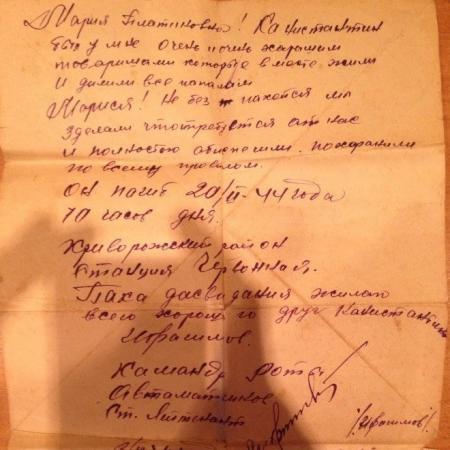 Мария Платиновна! Канистантин
был у мне очень и очень харашим
товарищами которые вместе жили
и дилили все папалам
Маруся! Не без пакойся мы
зделали что требуется от нас
и полностью обиспечили. похаранили
по всему правилам.
он погиб 20/II-44 года
10 часов дня.
Криворожский район
Станция Червонная.
Пака дасведания жилаю
всего хорош го друг Канистантин
Ибрагимов.
Командр роты
Автаматчиков
Ст. Лейтенант
/Ибрагимов/.